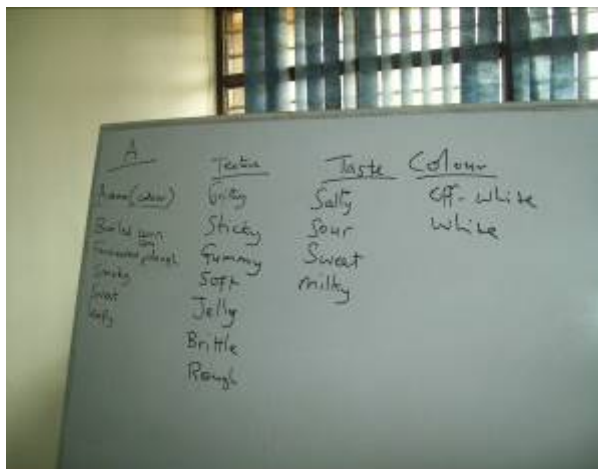 A
Boiled corn
Smoky
Sweet
Texture
Gritty
Sticky
Gummy
Soft
Jelly
Brittle
Rough
Taste
Salty
Sour
Sweat
Milky
Colour
Off-white
White